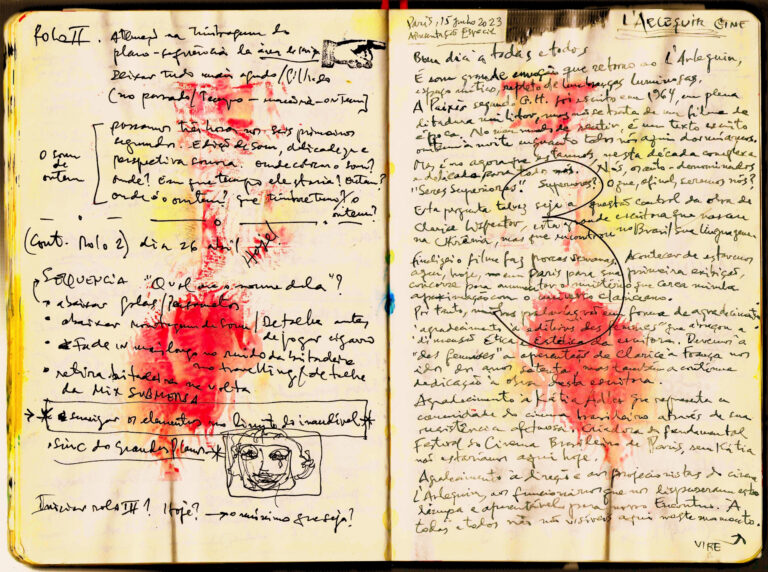 Rolo II. Atenção na timbragem do
plano-sequência da área de
Deixar tudo mais agudo/
(no passado/tempo – – ontem]
possamos nos seus primeiros
segundos. Edição de som, delicadeza e
perspectiva sonora. Onde está o som?
Onde? Em que tempo ele estaria? Ontem?
Onde é o ontem? Que timbre tem o
ontem?
O som
de
ontem
(Cont. Rolo 2) dia 26 abril
Hoje
SEQUENCIA "Qual é o nome dela"?
• abaixar
• abaixar montagem de som/Detalhe antes
de jogar cigarro
• Fade in mais longo no ruído da britadeira
no travelling/detalhe
• retira britadeira na volta
da Mix SUBMERSA
→ * os elementos no limite do inaudível *
. Sinc do grande plano *
Iniciar rolo III? Hoje? → o máximo que seja?
Paris, 15 junho 2023
Apresentação Especial
L'ARLEQUIN CINE
Bom dia a todas e todos
É com grande emoção que retorno ao L'Arlequin,
espaço mítico, repleto de lembranças luminosas.
A Paixão segundo G.H. foi escrito em 1964, em plena
ditadura militar, mas não se trata de um filme de
época. No meu modo de sentir, é um texto escrito
ontem à noite enquanto todos nós aqui dormíamos.
Ou, é no agora que estamos, nesta década complexa
e delicada para todos nós. Nós, os auto-denominados
"Seres Superiores". Superiores? O que, afinal, seremos nós?
Esta pergunta talvez seja a questão central da obra de
Clarice Lispector, esta grande escritora que nasceu
na Ucrânia, mas que encontrou no Brasil sua linguagem
Finalizei o filme faz poucas semanas. Acontecer de estarmos
aqui, hoje, em Paris para sua primeira exibição,
concorre para aumentar o mistério que cerca minha
aproximação com o clariceano.
Por tanto, minhas palavras são em forma de agradecimento:
agradecimento à "éditions des femmes" que abraçou a
dimensão Ética e Estética da escritora. Devemos à
"des femmes" a aparição de Clarice na França nos
idos dos anos setenta, mas também a enorme
dedicação à obra desta escritora.
Agradecimento à Kátia Adler que representa a
comunidade do cinema brasileiro através de sua
resistência afetuosa. Criadora do fundamental
Festival do Cinema Brasileiro de Paris, sem Kátia
não estaríamos aqui hoje.
Agradecimento à direção e aos projecionistas do cinema
L'Arlequin, aos funcionários que nos dispuseram esta
limpa e para nosso Encontro. A
todas e todos não visíveis aqui neste momento.
VIRE